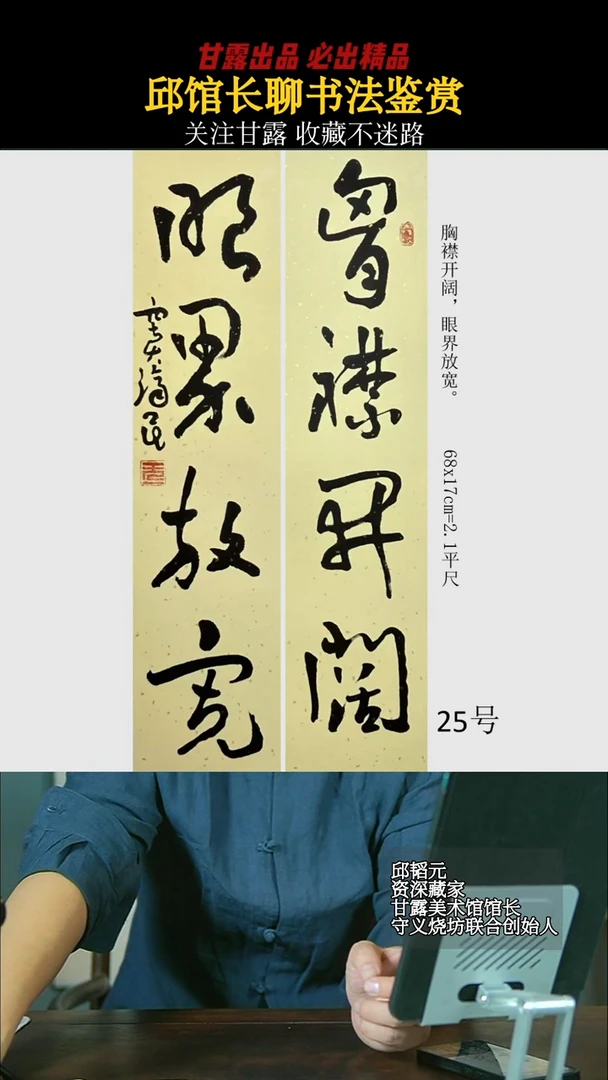 甘露出品 必出精品
邱馆长聊书法鉴赏
关注甘露 收藏不迷路
胸襟开阔
眼界放宽
胸襟开阔，眼界放宽。 68x17cm=2.1平尺
25号
邱韬元
资深藏家
甘露美术馆馆长
守义烧坊联合创始人